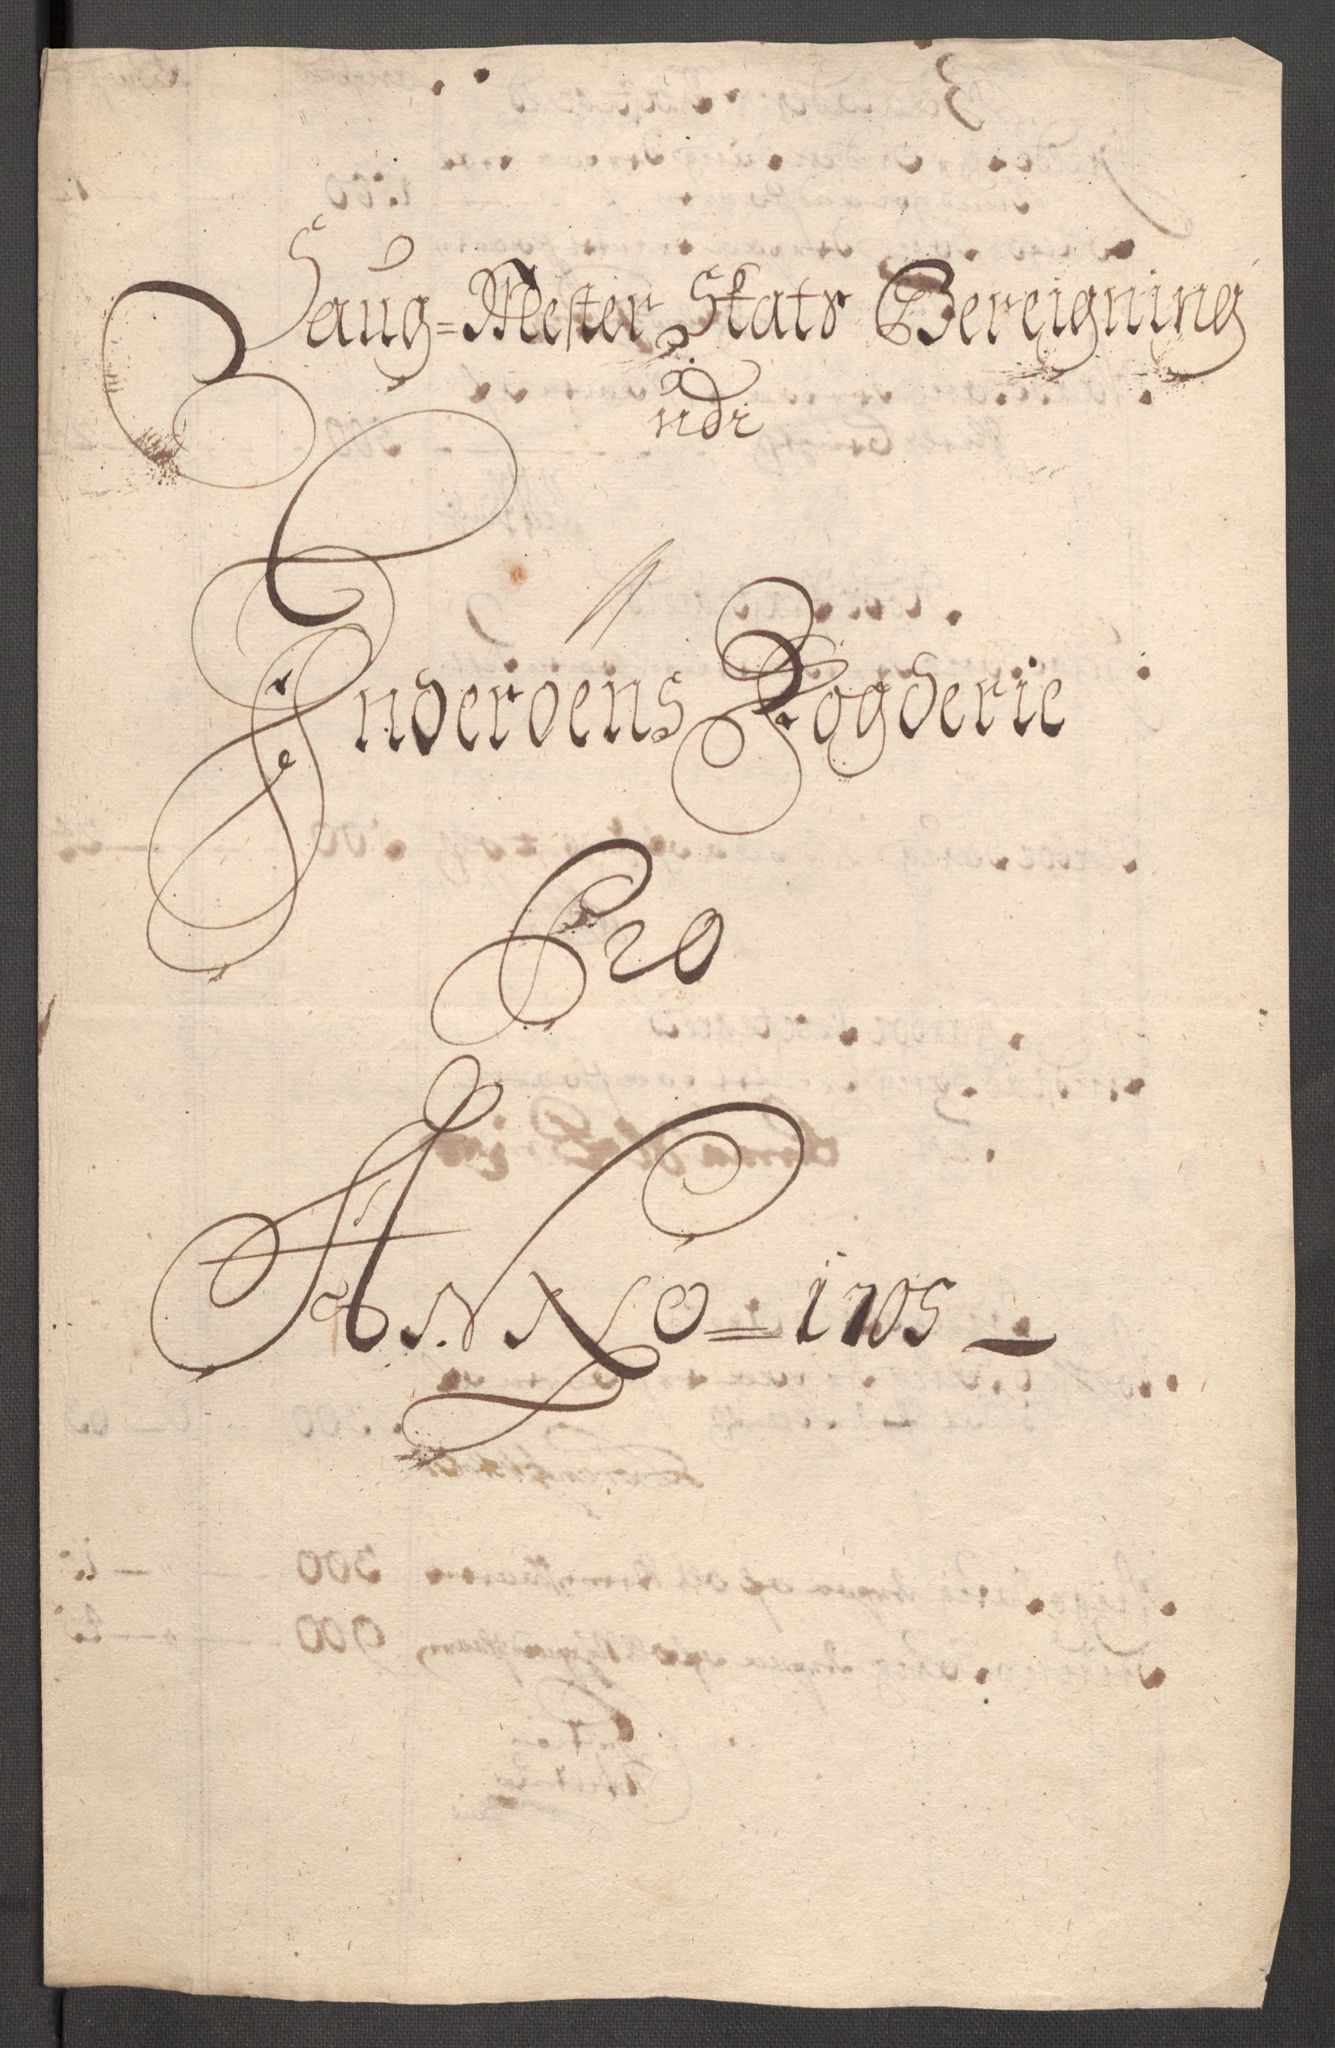 Saug=Mester Skats Bereigning
udi
Inderøens Fogderie
Pro
ANNO = 1705 —